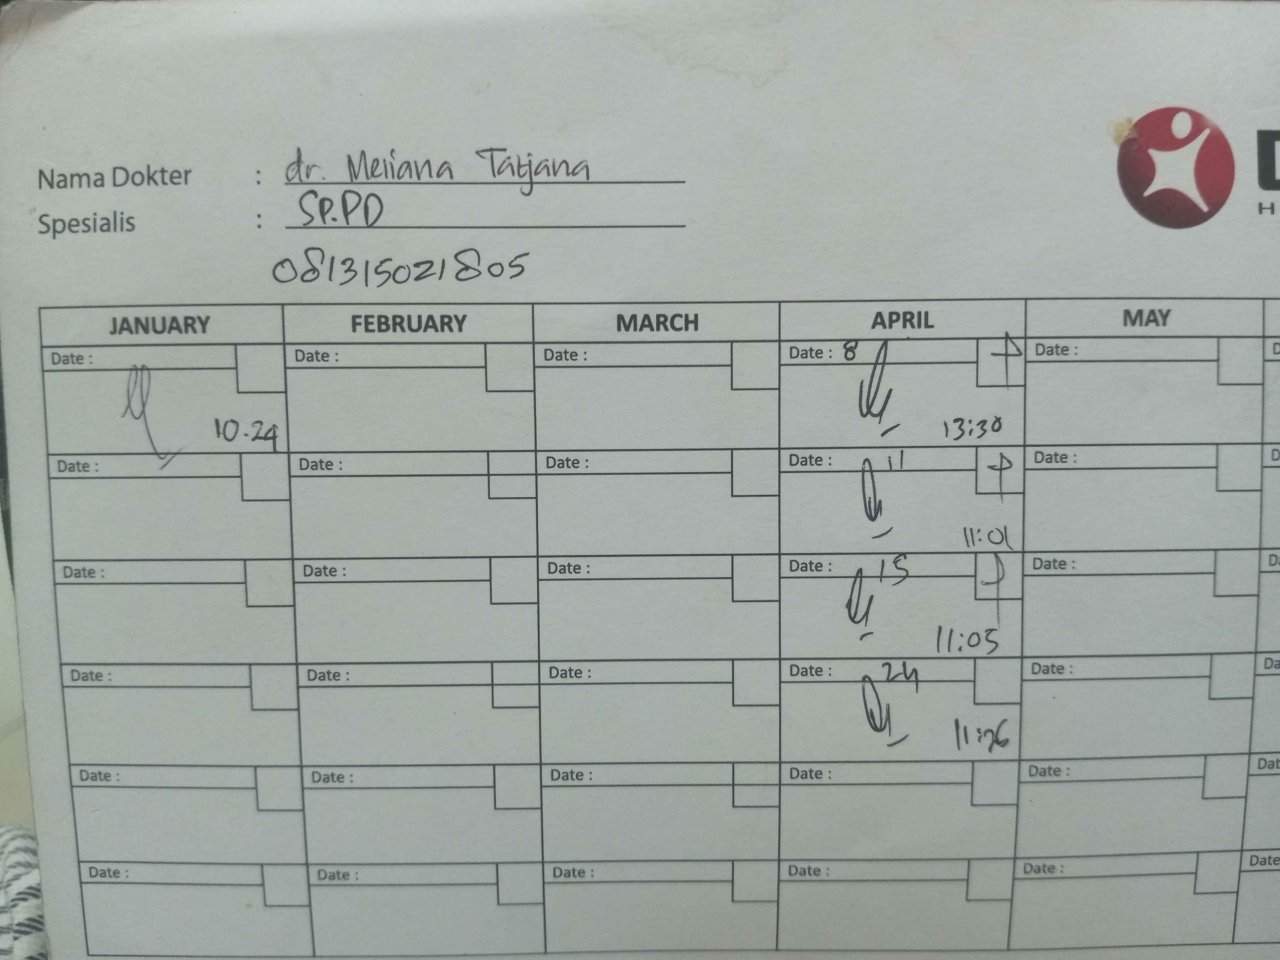 Nama Dokter : dr. Meliana Tatjana
Spesialis : SP.PD
081315021805
JANUARY FEBRUARY MARCH APRIL MAY
Date : Date : Date : Date : 8 Date :
10.24 13:30
Date : Date : Date : Date : 11 Date :
11:01
Date : Date : Date : Date : 15 Date :
11:05
Date : Date : Date : Date : 24 Date : Da
11:26
Date : Date : Date : Date : Date : Dat
Date : Date : Date : Date : Date : Date